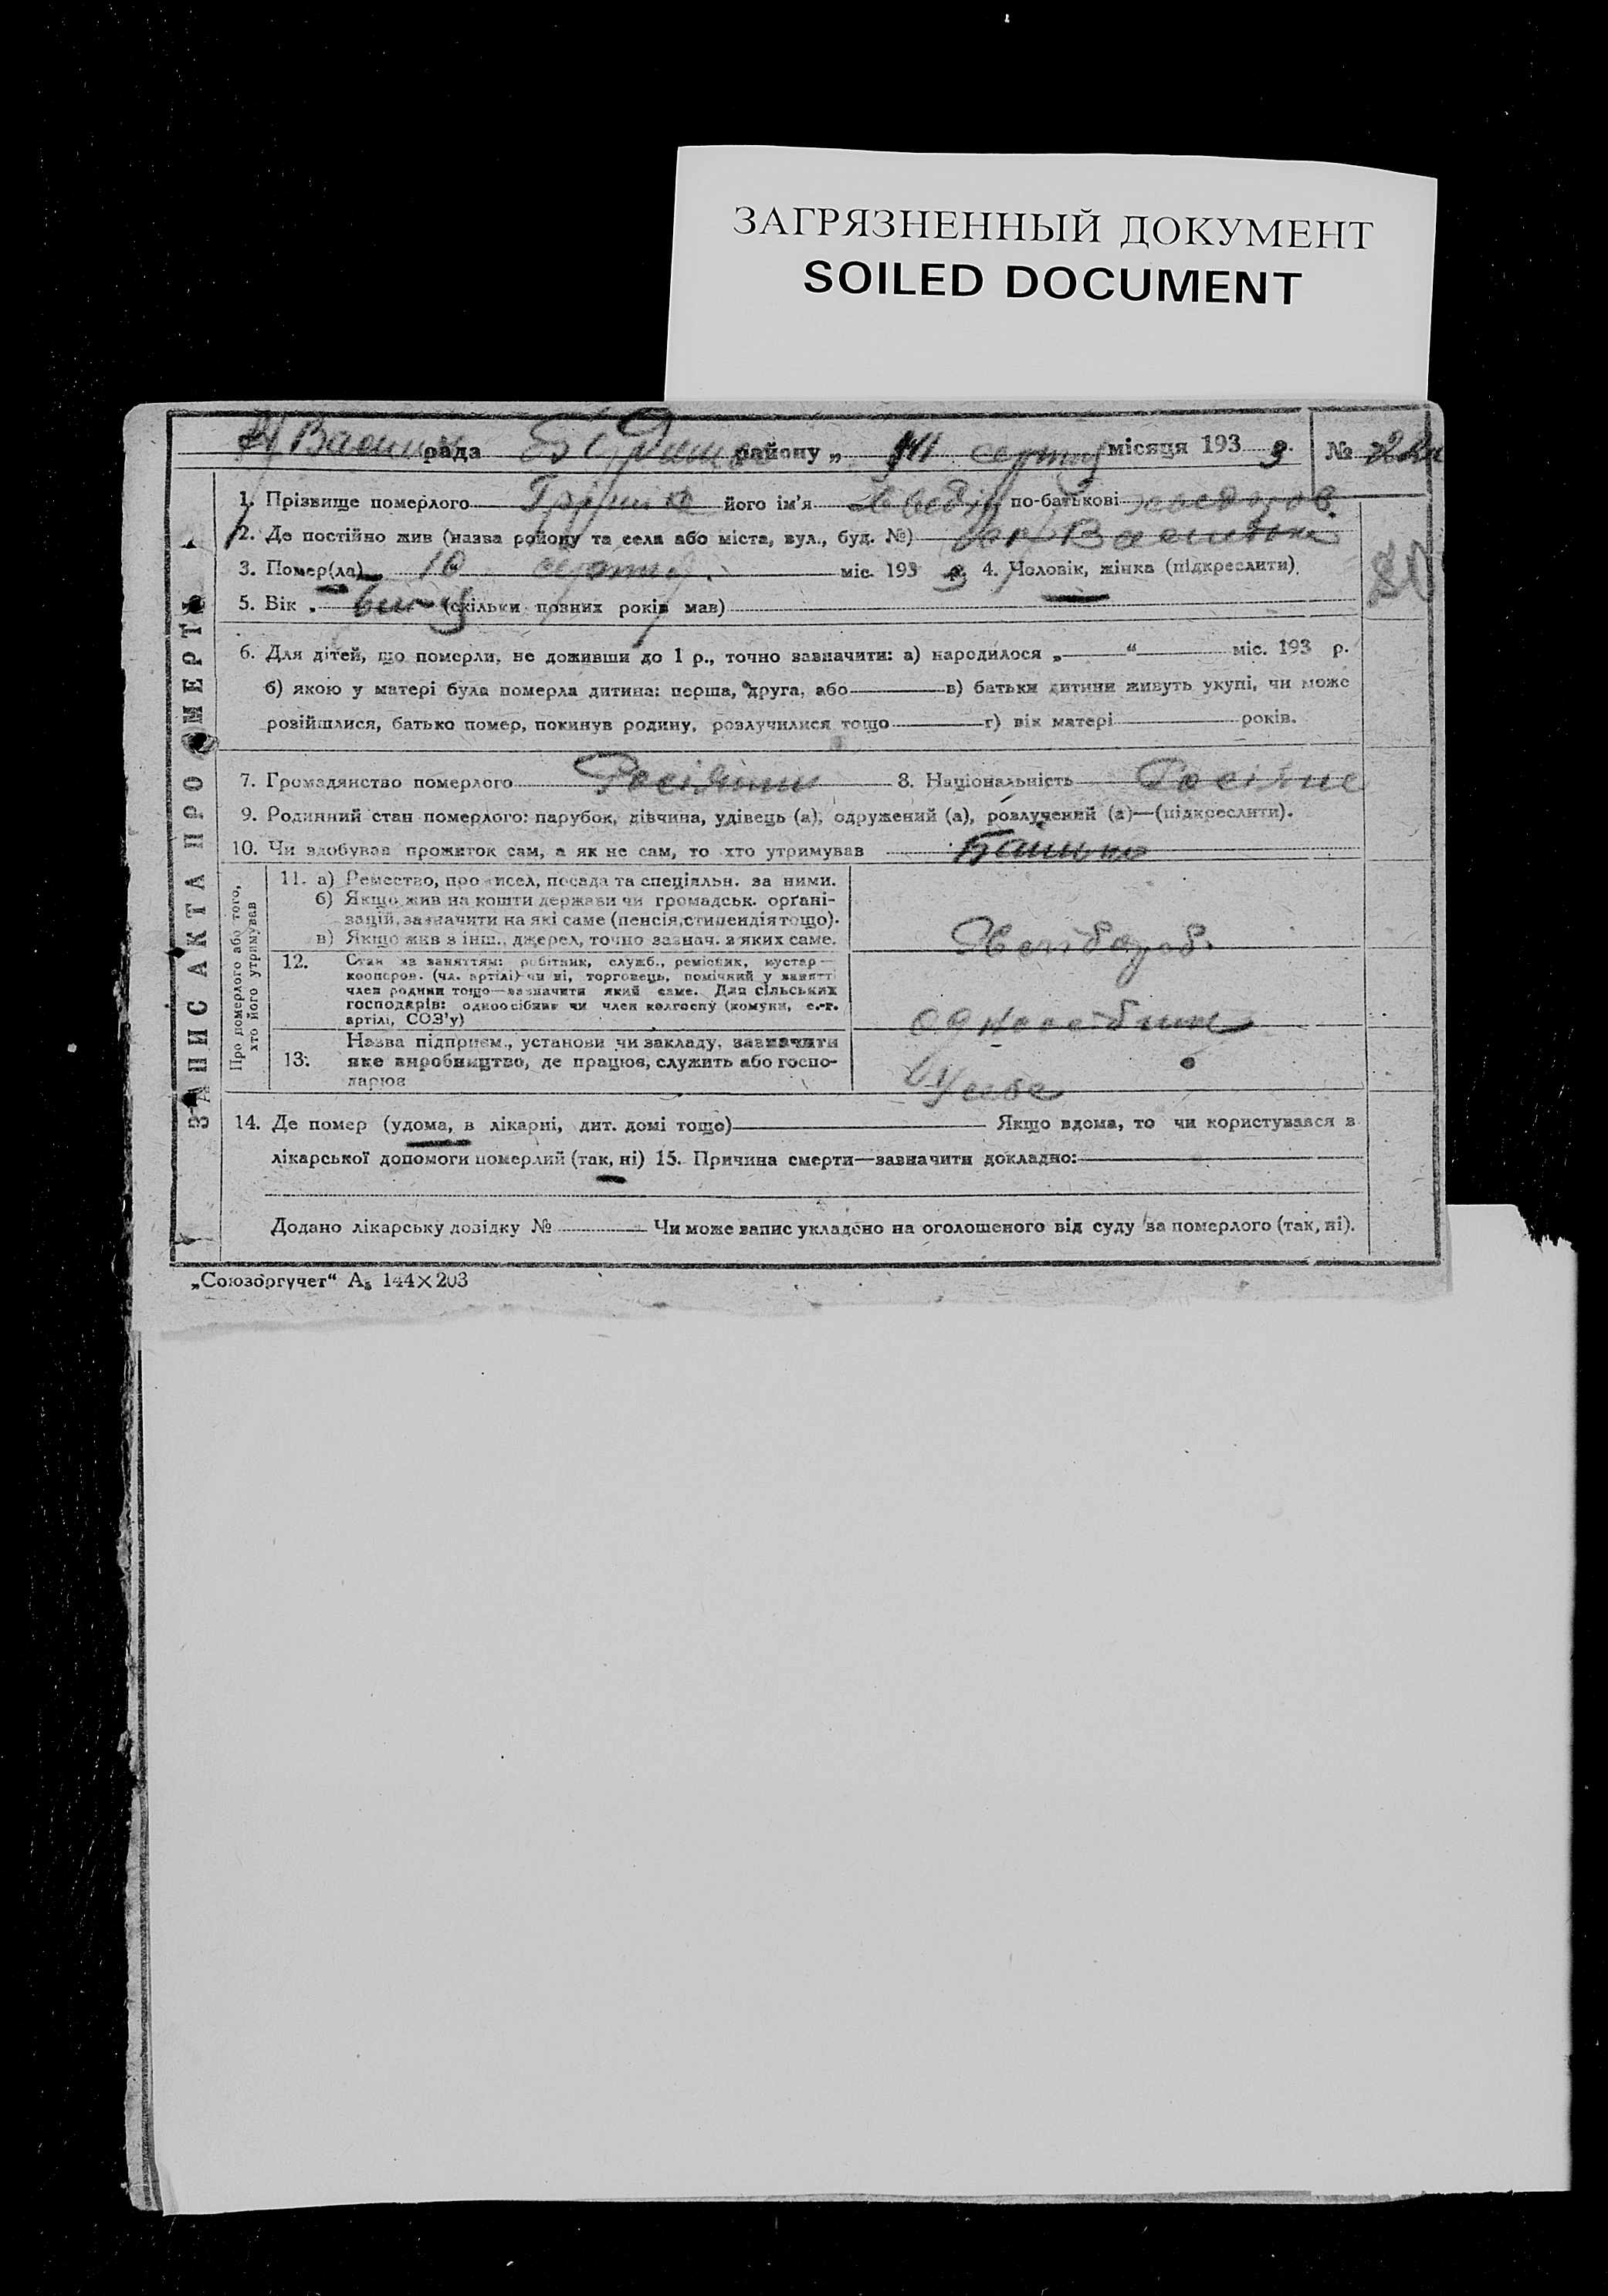 ЗАГРЯЗНЕННЫЙ ДОКУМЕНТ
SOILED DOCUMENT
рада району „ місяця 193 3 р. №
1. Прізвище померлого його ім'я по-батькові
2. Де постійно жив (назва району та села або міста, вул., буд. №)
3. Помер(ла) „ 10 серпня міс. 193 3 4. Чоловік, жінка (підкреслити).
5. Вік (скільки повних років мав)
6. Для дітей, що померли, не доживши до 1 р., точно зазначити: а) народилося „ “ міс. 193 р.
б) якою у матері була померла дитина: перша, друга, або в) батьки дитини живуть укупі, чи може
розійшлися, батько помер, покинув родину, розлучилися тощо г) вік матері років.
7. Громадянство померлого 8. Національність
9. Родинний стан померлого: парубок, дівчина, удівець (а), одружений (а), розлучений (а)—(підкреслити).
10. Чи здобував прожиток сам, а як не сам, то хто утримував Батько
ЗАПИС АКТА ПРО СМЕРТЬ
Про померлого або того,
хто його утримував
11. а) Ремество, промисел, посада та спеціяльн. за ними.
б) Якщо жив на кошти держави чи громадськ. орґані-
зацій, зазначити на які саме (пенсія, стипендія тощо).
в) Якщо жив з інш., джерел, точно зазнач. з яких саме.
Хлібороб.
12. Стан за заняттям: робітник, служб., ремісник, кустар—
кооперов. (чл. артілі) чи ні, торговець, помічний у занятті
член родини тощо—зазначити який саме. Для сільських
господарів: одноосібник чи член колгоспу (комуни, с.-г.
артілі, СОЗ'у)
одноосібник
13. Назва підприєм., установи чи закладу, зазначити
яке виробництво, де працює, служить або госпо-
дарює
У себе
14. Де помер (удома, в лікарні, дит. домі тощо) Якщо вдома, то чи користувався з
лікарської допомоги померлий (так, ні) 15. Причина смерти—зазначити докладно:
Додано лікарську довідку № Чи може запис укладено на оголошеного від суду за померлого (так, ні).
„Союзоргучет“ А₅ 144×203